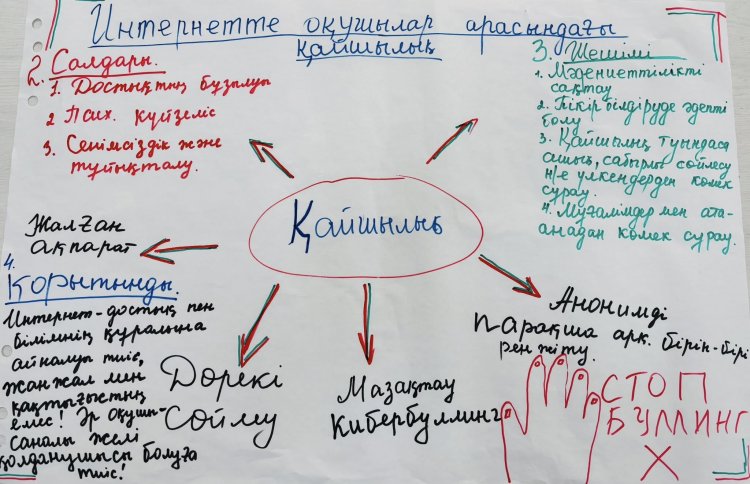 Интернетте оқушылар арасындағы
қайшылық
2. Салдары.
1. Достықтың бұзылуы
2 Псих. күйзеліс
3. Сенімсіздік және
тұйықталу.
3. Шешімі
1. Мәдениеттілікті
сақтау
2. Пікір білдіруде әдепті
болу
3. Қайшылық туындаса
ашық, сабырлы сөйлесу
н/е үлкендерден көмек
сұрау.
4. Мұғалімдер мен ата-
анадан көмек сұрау.
Қайшылық
Жалған
ақпарат
4.
Қорытынды.
Интернет-достық пен
білімнің құралына
айналуы тиіс,
жанжал мен
қақтығыстың
емес! Әр оқушы-
саналы желі
қолданушысы болуға
тиіс!
Дөрекі
сөйлеу
Мазақтау
Кибербуллинг
Анонимді
парақша арқ. бірін-бірі
ренжіту.
СТОП
БУЛЛИНГ
X